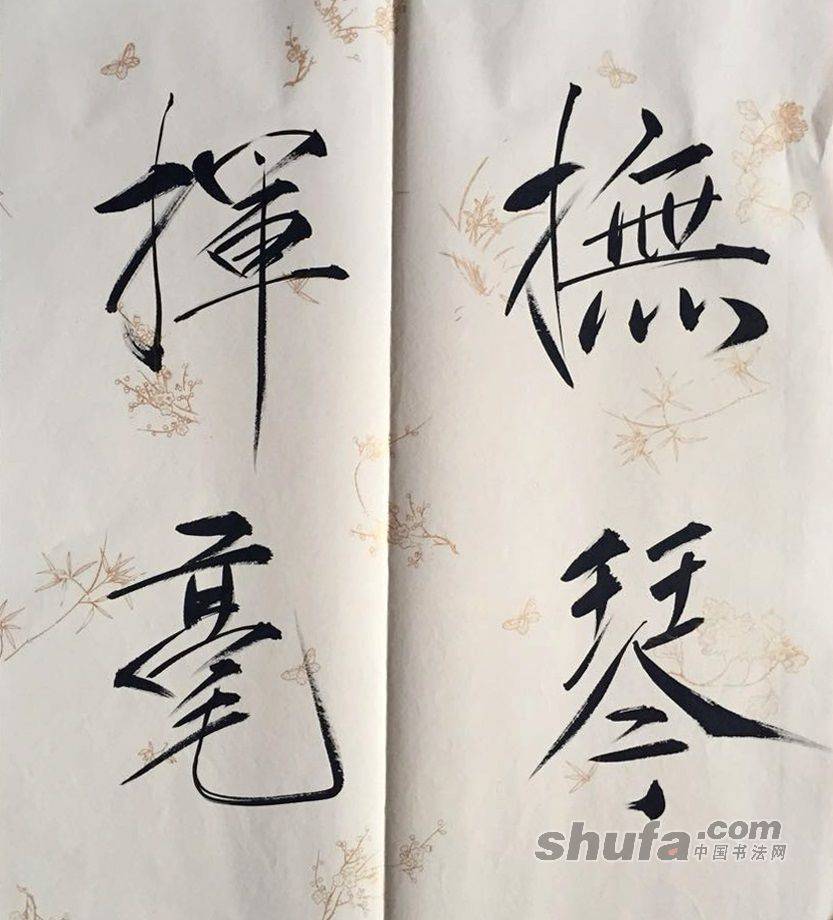 撫琴
揮毫
shufa.com
中国书法网